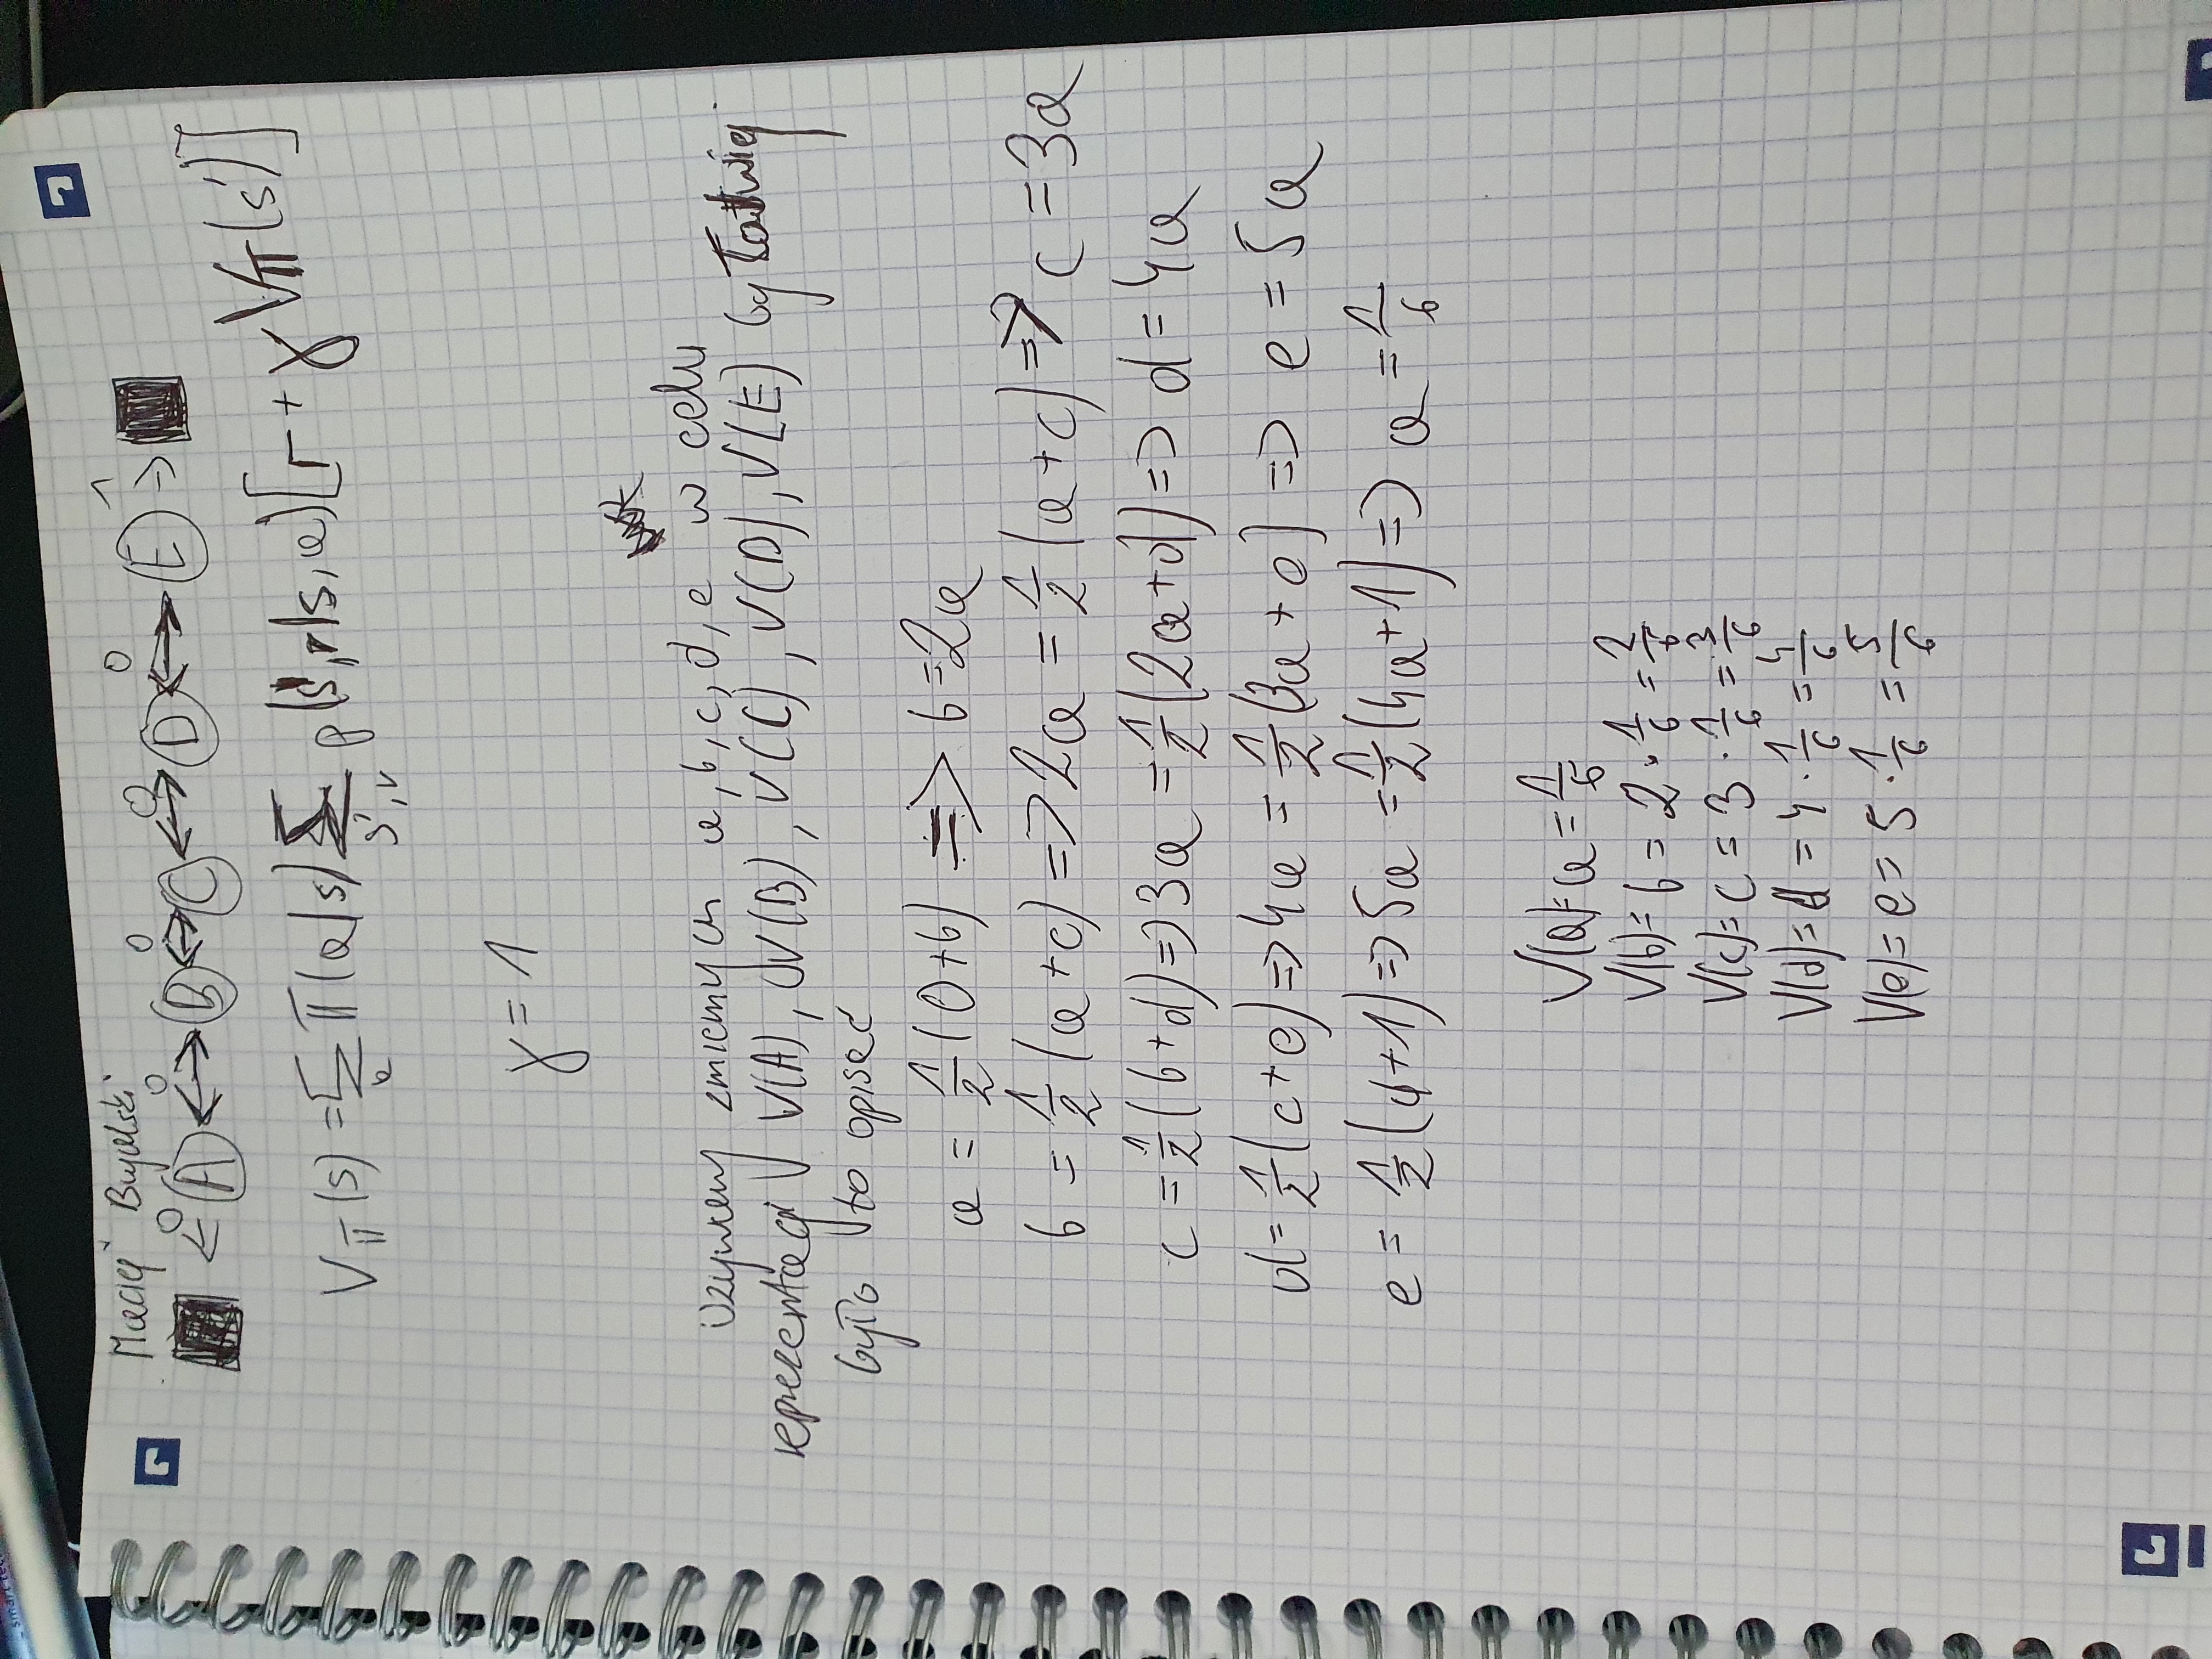 smart tec
Maciej Bujalski
0 0 0 0 0 1
← A ↔ B ↔ C ↔ D ↔ E →
V_π(s) = Σ_a π(a|s) Σ_{s',r} p(s',r|s,a)[r + γ V_π(s')]
γ = 1
Używamy zmiennych a, b, c, d, e w celu
reprezentacji V(A), V(B), V(C), V(D), V(E) by łatwiej
było to opisać
a = 1/2 (0+b) => b = 2a
b = 1/2 (a+c) => 2a = 1/2 (a+c) => c = 3a
c = 1/2 (b+d) => 3a = 1/2 (2a+d) => d = 4a
d = 1/2 (c+e) => 4a = 1/2 (3a+e) => e = 5a
e = 1/2 (d+1) => 5a = 1/2 (4a+1) => a = 1/6
V(a) = a = 1/6
V(b) = b = 2 · 1/6 = 2/6
V(c) = c = 3 · 1/6 = 3/6
V(d) = d = 4 · 1/6 = 4/6
V(e) = e = 5 · 1/6 = 5/6